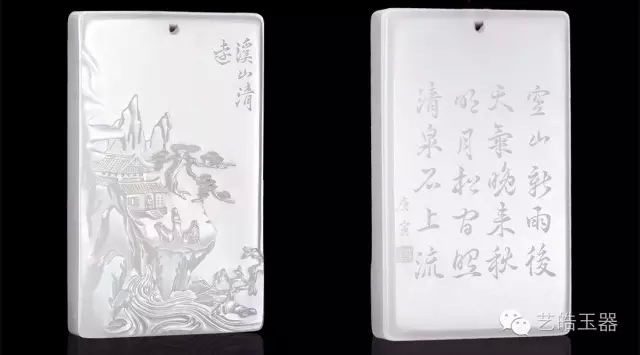 溪山清
遠
空山新雨後
天氣晚来秋
明月松间照
清泉石上流
艺皓玉器